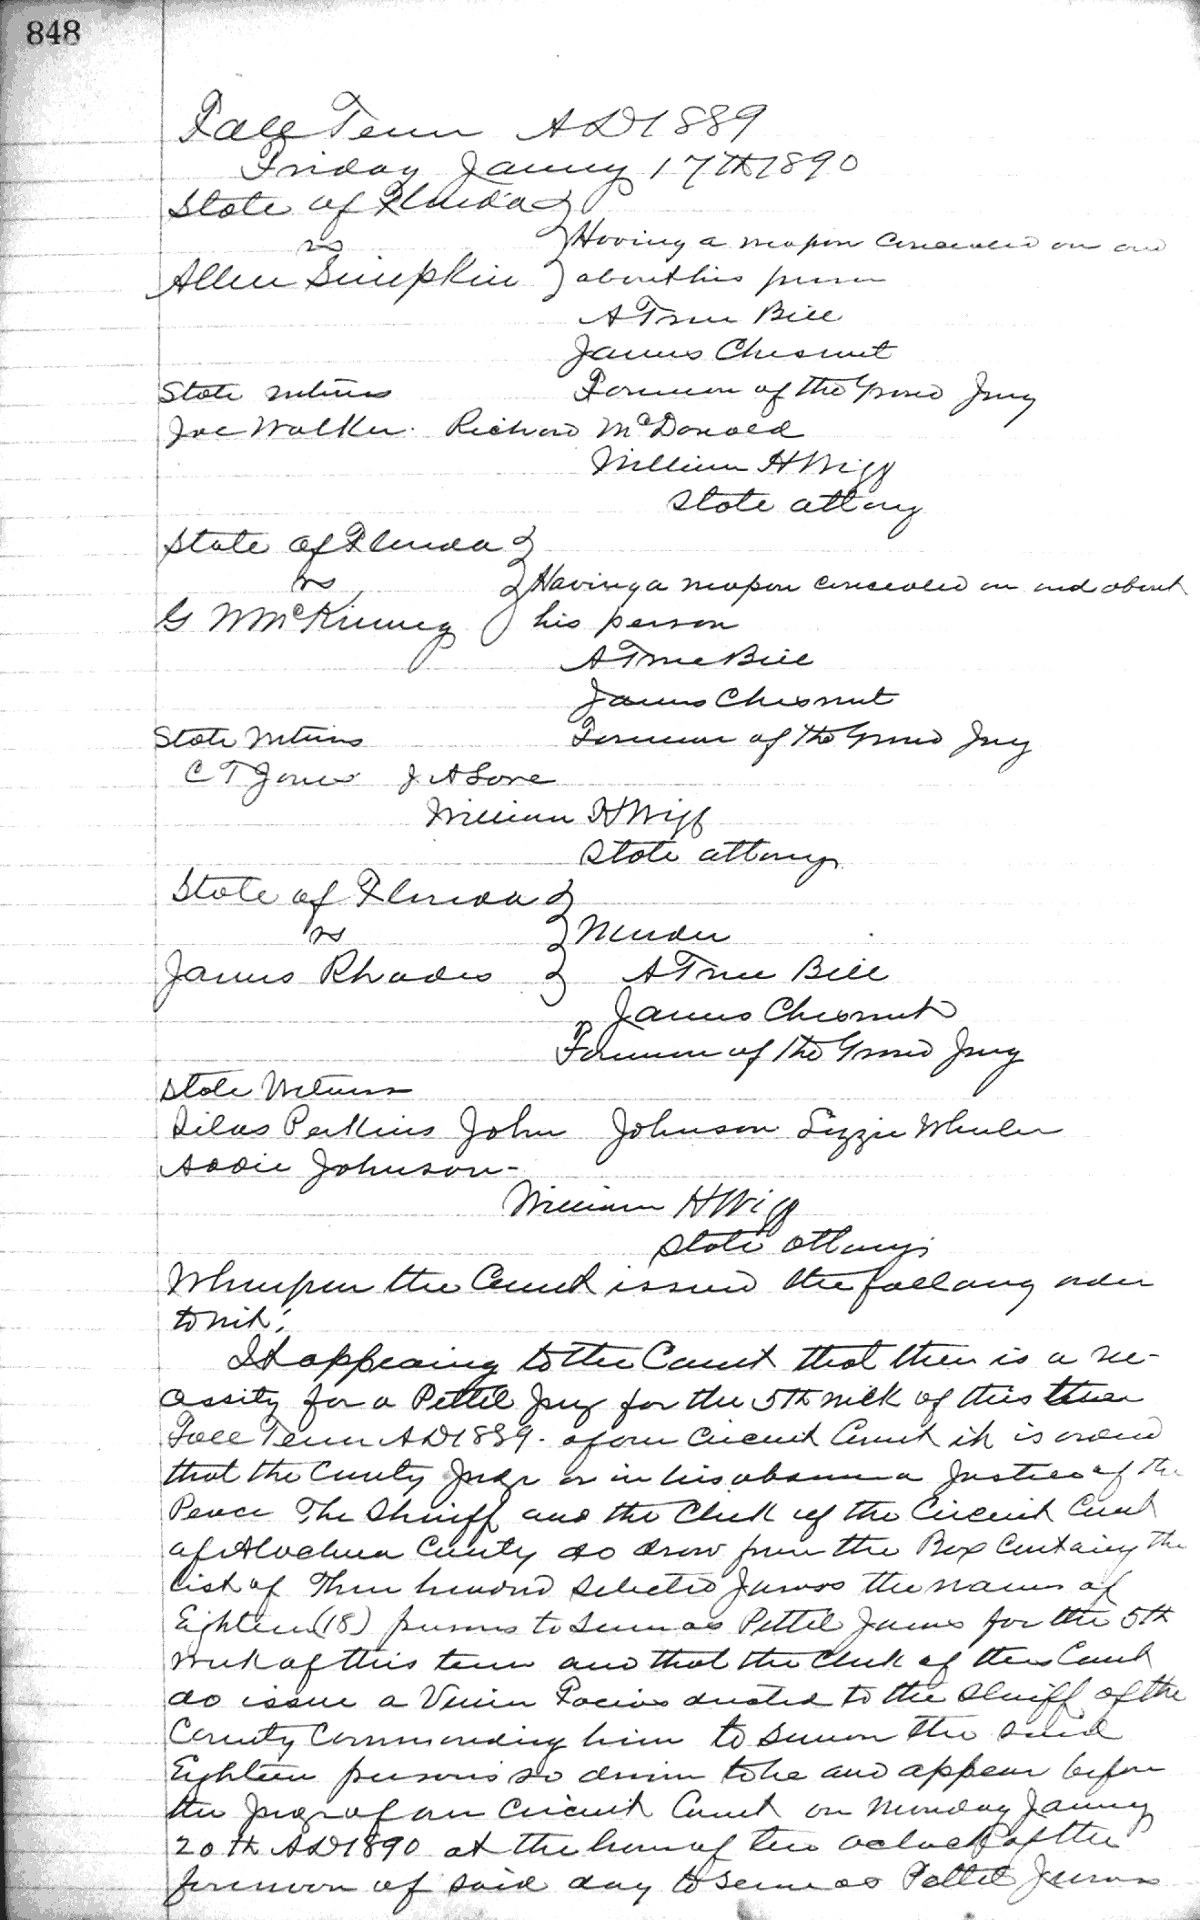 848
Fall Term AD 1889
Friday Januy 17th 1890
State of Florida
vs
Having a weapon concealed on and
Allen Simpkin about his person
A True Bill
James Chesnut
State witness Foreman of the Grand Jury
Joe Walker. Richard McDonald
William H Wigg
State attony
State of Florida
vs Having a weapon concealed on and about
G W McKinney his person
A True Bill
James Chesnut
State Witness Foreman of the Grand Jury
C T Jones J A Love
William H Wigg
State attony
State of Florida
vs Murder
James Rhodes A True Bill
James Chesnut
Foreman of the Grand Jury
State Witness
Silas Perkins John Johnson Lizzie Wheeler
Addie Johnson-
William H Wigg
State attony
Whereupon the Court issued the following order
towit:
It appearing to the Court that there is a ne-
cessity for a Pettit Jury for the 5th week of this
Fall Term AD 1889. of our Circuit Court it is ordered
that the County Judge or in his absence a Justice of the
Peace The Sheriff and the Clerk of the Circuit Court
of Alachua County do draw from the Box Containing the
list of Three hundred Selected Jurors the names of
Eighteen (18) persons to serve as Pettit Jurors for the 5th
week of this term and that the Clerk of this Court
do issue a Venire Facias directed to the Sheriff of the
County Commanding him to summon the said
Eighteen persons so drawn to be and appear before
the Judge of our Circuit Court on Monday Januy
20th AD 1890 at the hour of ten oclock of the
forenoon of said day to serve as Pettit Jurors